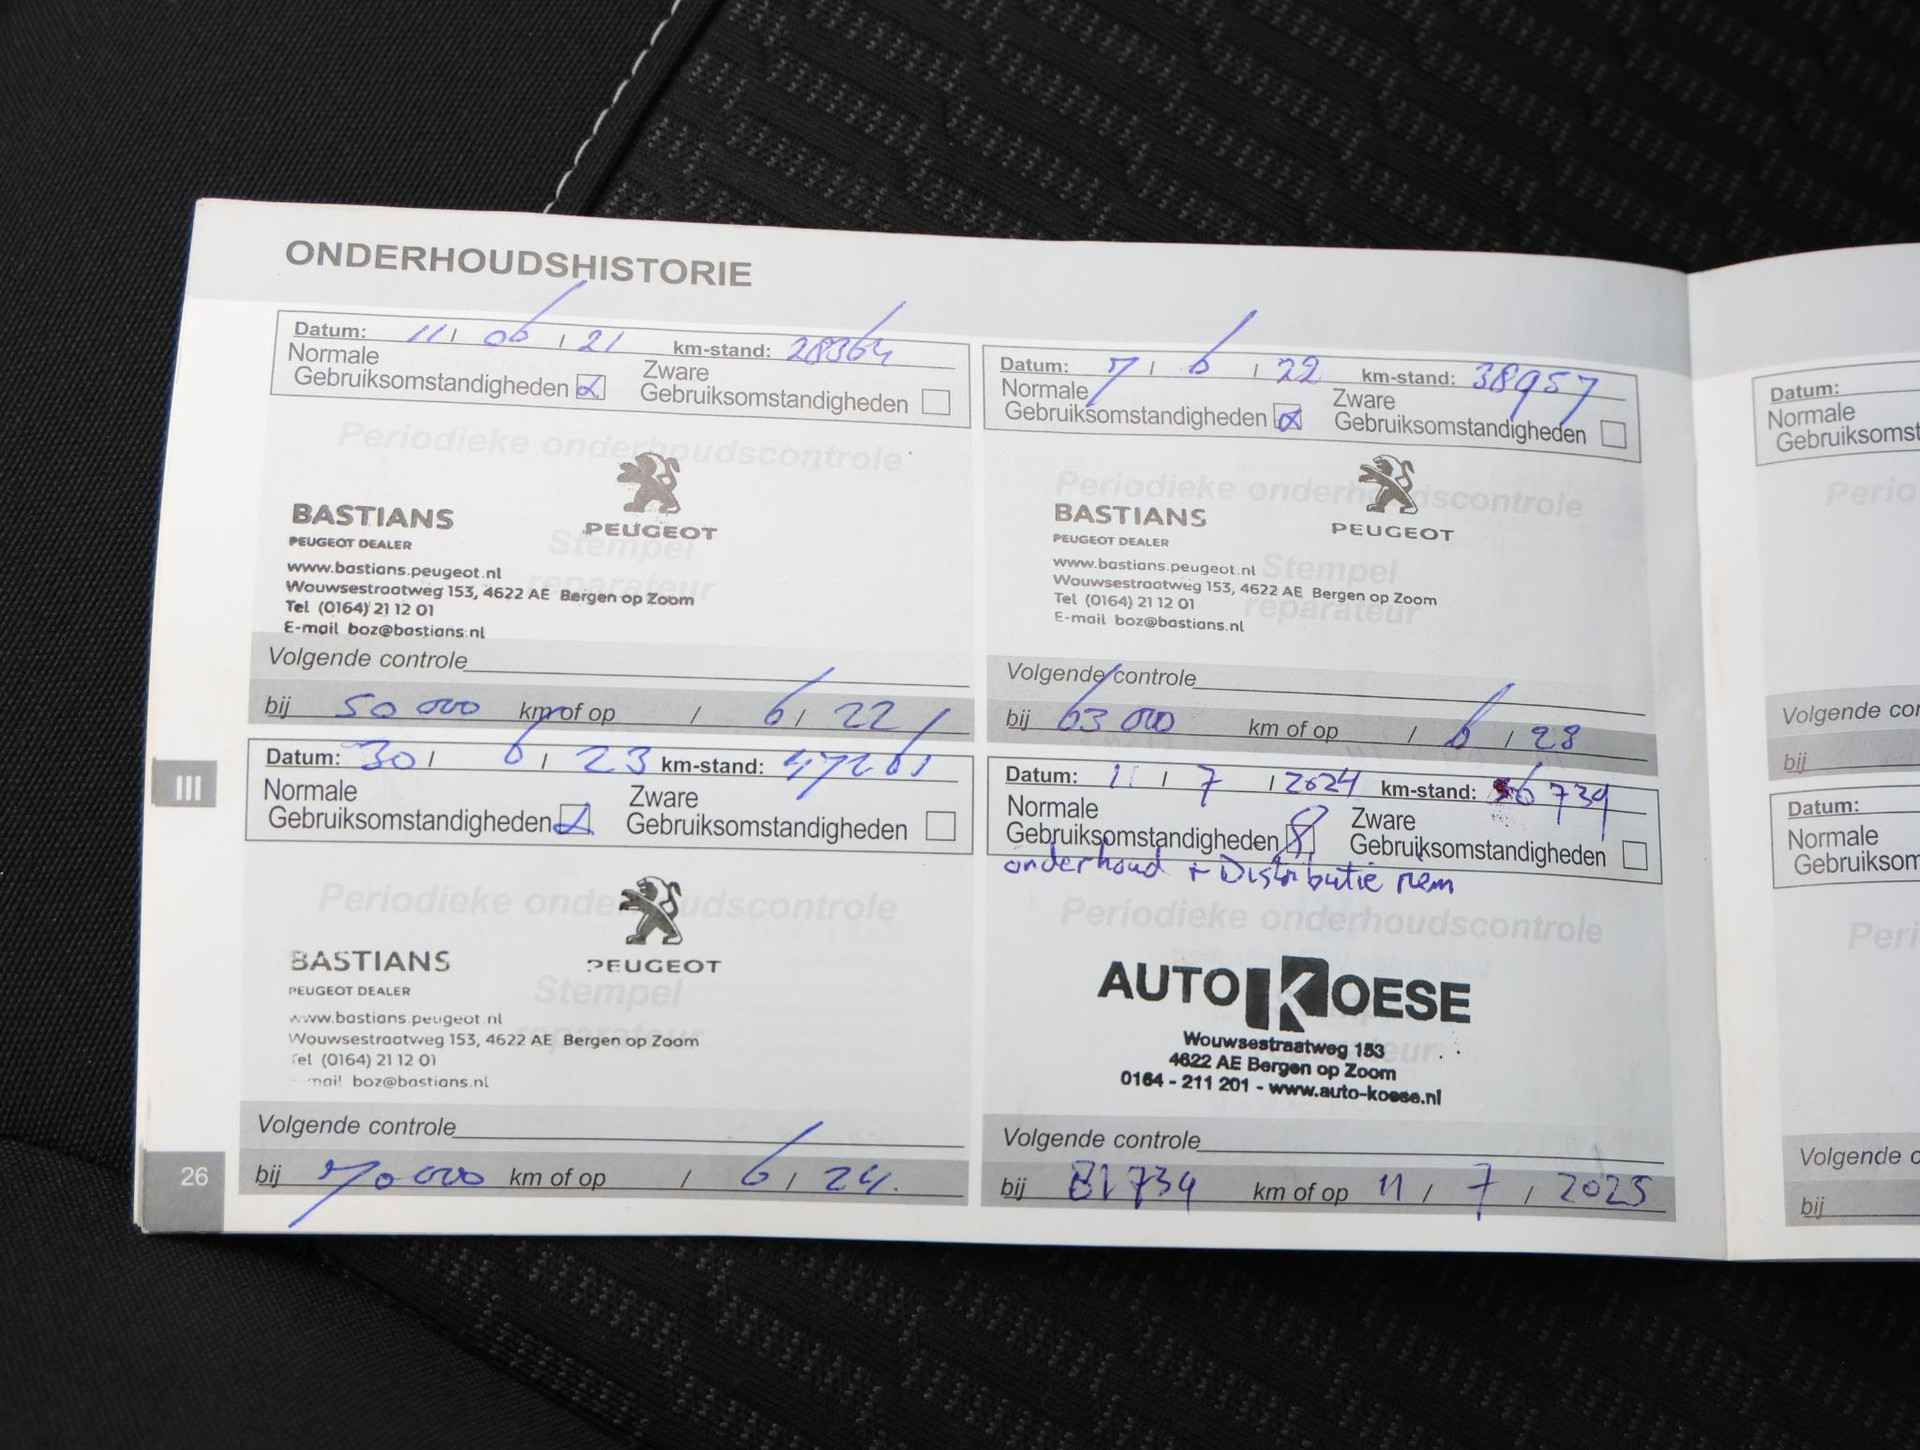 ONDERHOUDSHISTORIE
Datum: 11 / 06 / 21 km-stand: 28364
Normale
Gebruiksomstandigheden
Zware
Gebruiksomstandigheden
Periodieke onderhoudscontrole
Stempel
reparateur
BASTIANS
PEUGEOT DEALER
PEUGEOT
www.bastians.peugeot.nl
Wouwsestraatweg 153, 4622 AE Bergen op Zoom
Tel (0164) 21 12 01
E-mail boz@bastians.nl
Volgende controle
bij 50 000 km of op / 6 / 22
Datum: 7 / 6 / 22 km-stand: 38957
Normale
Gebruiksomstandigheden
Zware
Gebruiksomstandigheden
Periodieke onderhoudscontrole
Stempel
reparateur
BASTIANS
PEUGEOT DEALER
PEUGEOT
www.bastians.peugeot.nl
Wouwsestraatweg 153, 4622 AE Bergen op Zoom
Tel (0164) 21 12 01
E-mail boz@bastians.nl
Volgende controle
bij 63 000 km of op / 6 / 28
III
Datum: 30 / 6 / 23 km-stand: 47261
Normale
Gebruiksomstandigheden
Zware
Gebruiksomstandigheden
Periodieke onderhoudscontrole
Stempel
BASTIANS
PEUGEOT DEALER
PEUGEOT
www.bastians.peugeot.nl
Wouwsestraatweg 153, 4622 AE Bergen op Zoom
Tel (0164) 21 12 01
boz@bastians.nl
Volgende controle
bij 70 000 km of op / 6 / 24.
Datum: 11 / 7 / 2024 km-stand: 56 739
Normale
Gebruiksomstandigheden
Zware
Gebruiksomstandigheden
onderhoud + Distributie riem
Periodieke onderhoudscontrole
AUTO KOESE
Wouwsestraatweg 153
4622 AE Bergen op Zoom
0164 - 211 201 - www.auto-koese.nl
Volgende controle
bij 81739 km of op 11 / 7 / 2025
26
Datum:
Normale
Gebruiksomst
Perio
Volgende con
bij
Datum:
Normale
Gebruiksom
Peri
Volgende c
bij